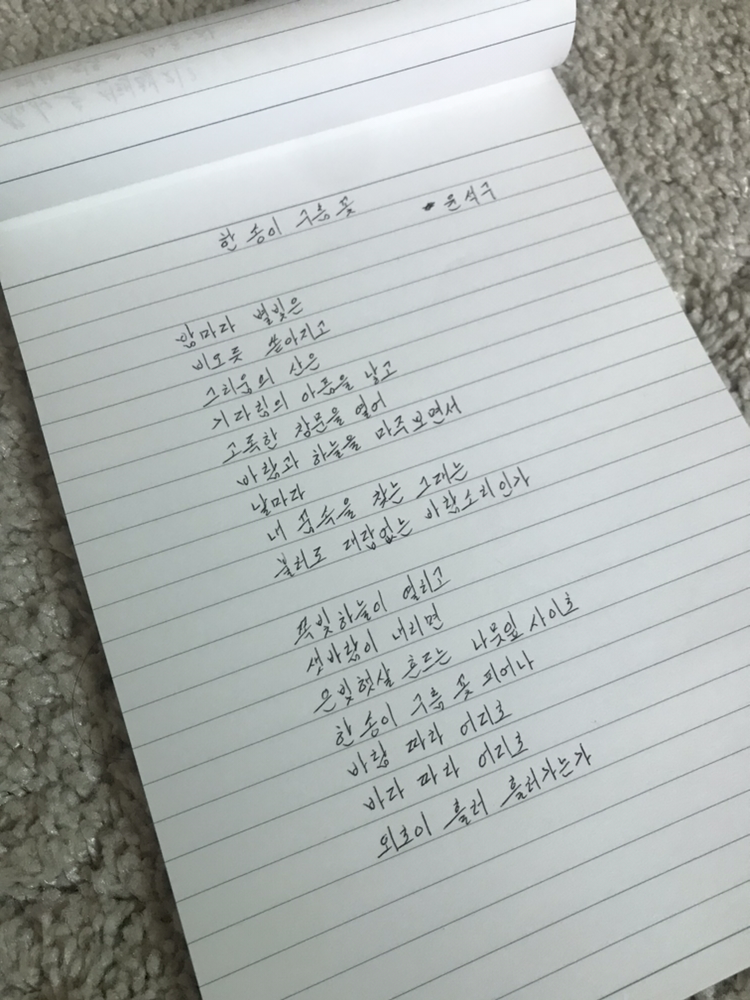 한 송이 구름 꽃 • 윤석구
밤마다 별빛은
비오듯 쏟아지고
그리움의 산은
기다림의 아픔을 낳고
고독한 창문을 열어
바람과 하늘을 마주보면서
날마다
내 꿈속을 찾는 그대는
불러도 대답없는 바람소리인가
쪽빛하늘이 열리고
샛바람이 내리면
은빛햇살 흐르는 나뭇잎 사이로
한 송이 구름 꽃 피어나
바람 따라 어디로
바다 따라 어디로
외로이 흘러 흘러가는가